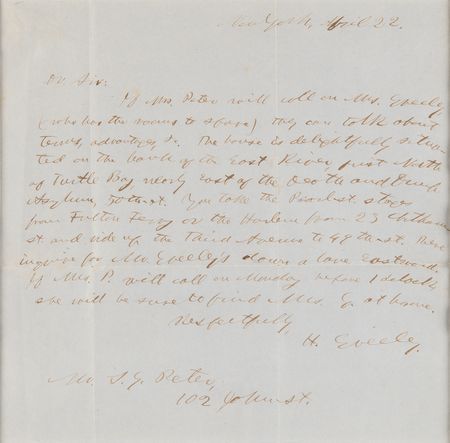 New York, April 22.
Dr Sir:
If Mrs. Peter will call on Mrs. Greeley
(who has the rooms to spare) they can talk about
terms, advantages &c. The house is delightfully situa-
ted on the bank of the East River just North
of Turtle Bay nearly East of the Deaf and Dumb
Asylum, 50th st. You take the stages
from Fulton Ferry or the Harlem from 23 Chatham
st. and ride up the Third Avenue to 49th st. There
inquire for Mr. Greeley's down a lane eastward.
If Mrs. P. will call on Monday before 1 o'clock
she will be sure to find Mrs. G. at home.
Respectfully,
H. Greeley.
Mr. S. G. Peter,
102 John st.